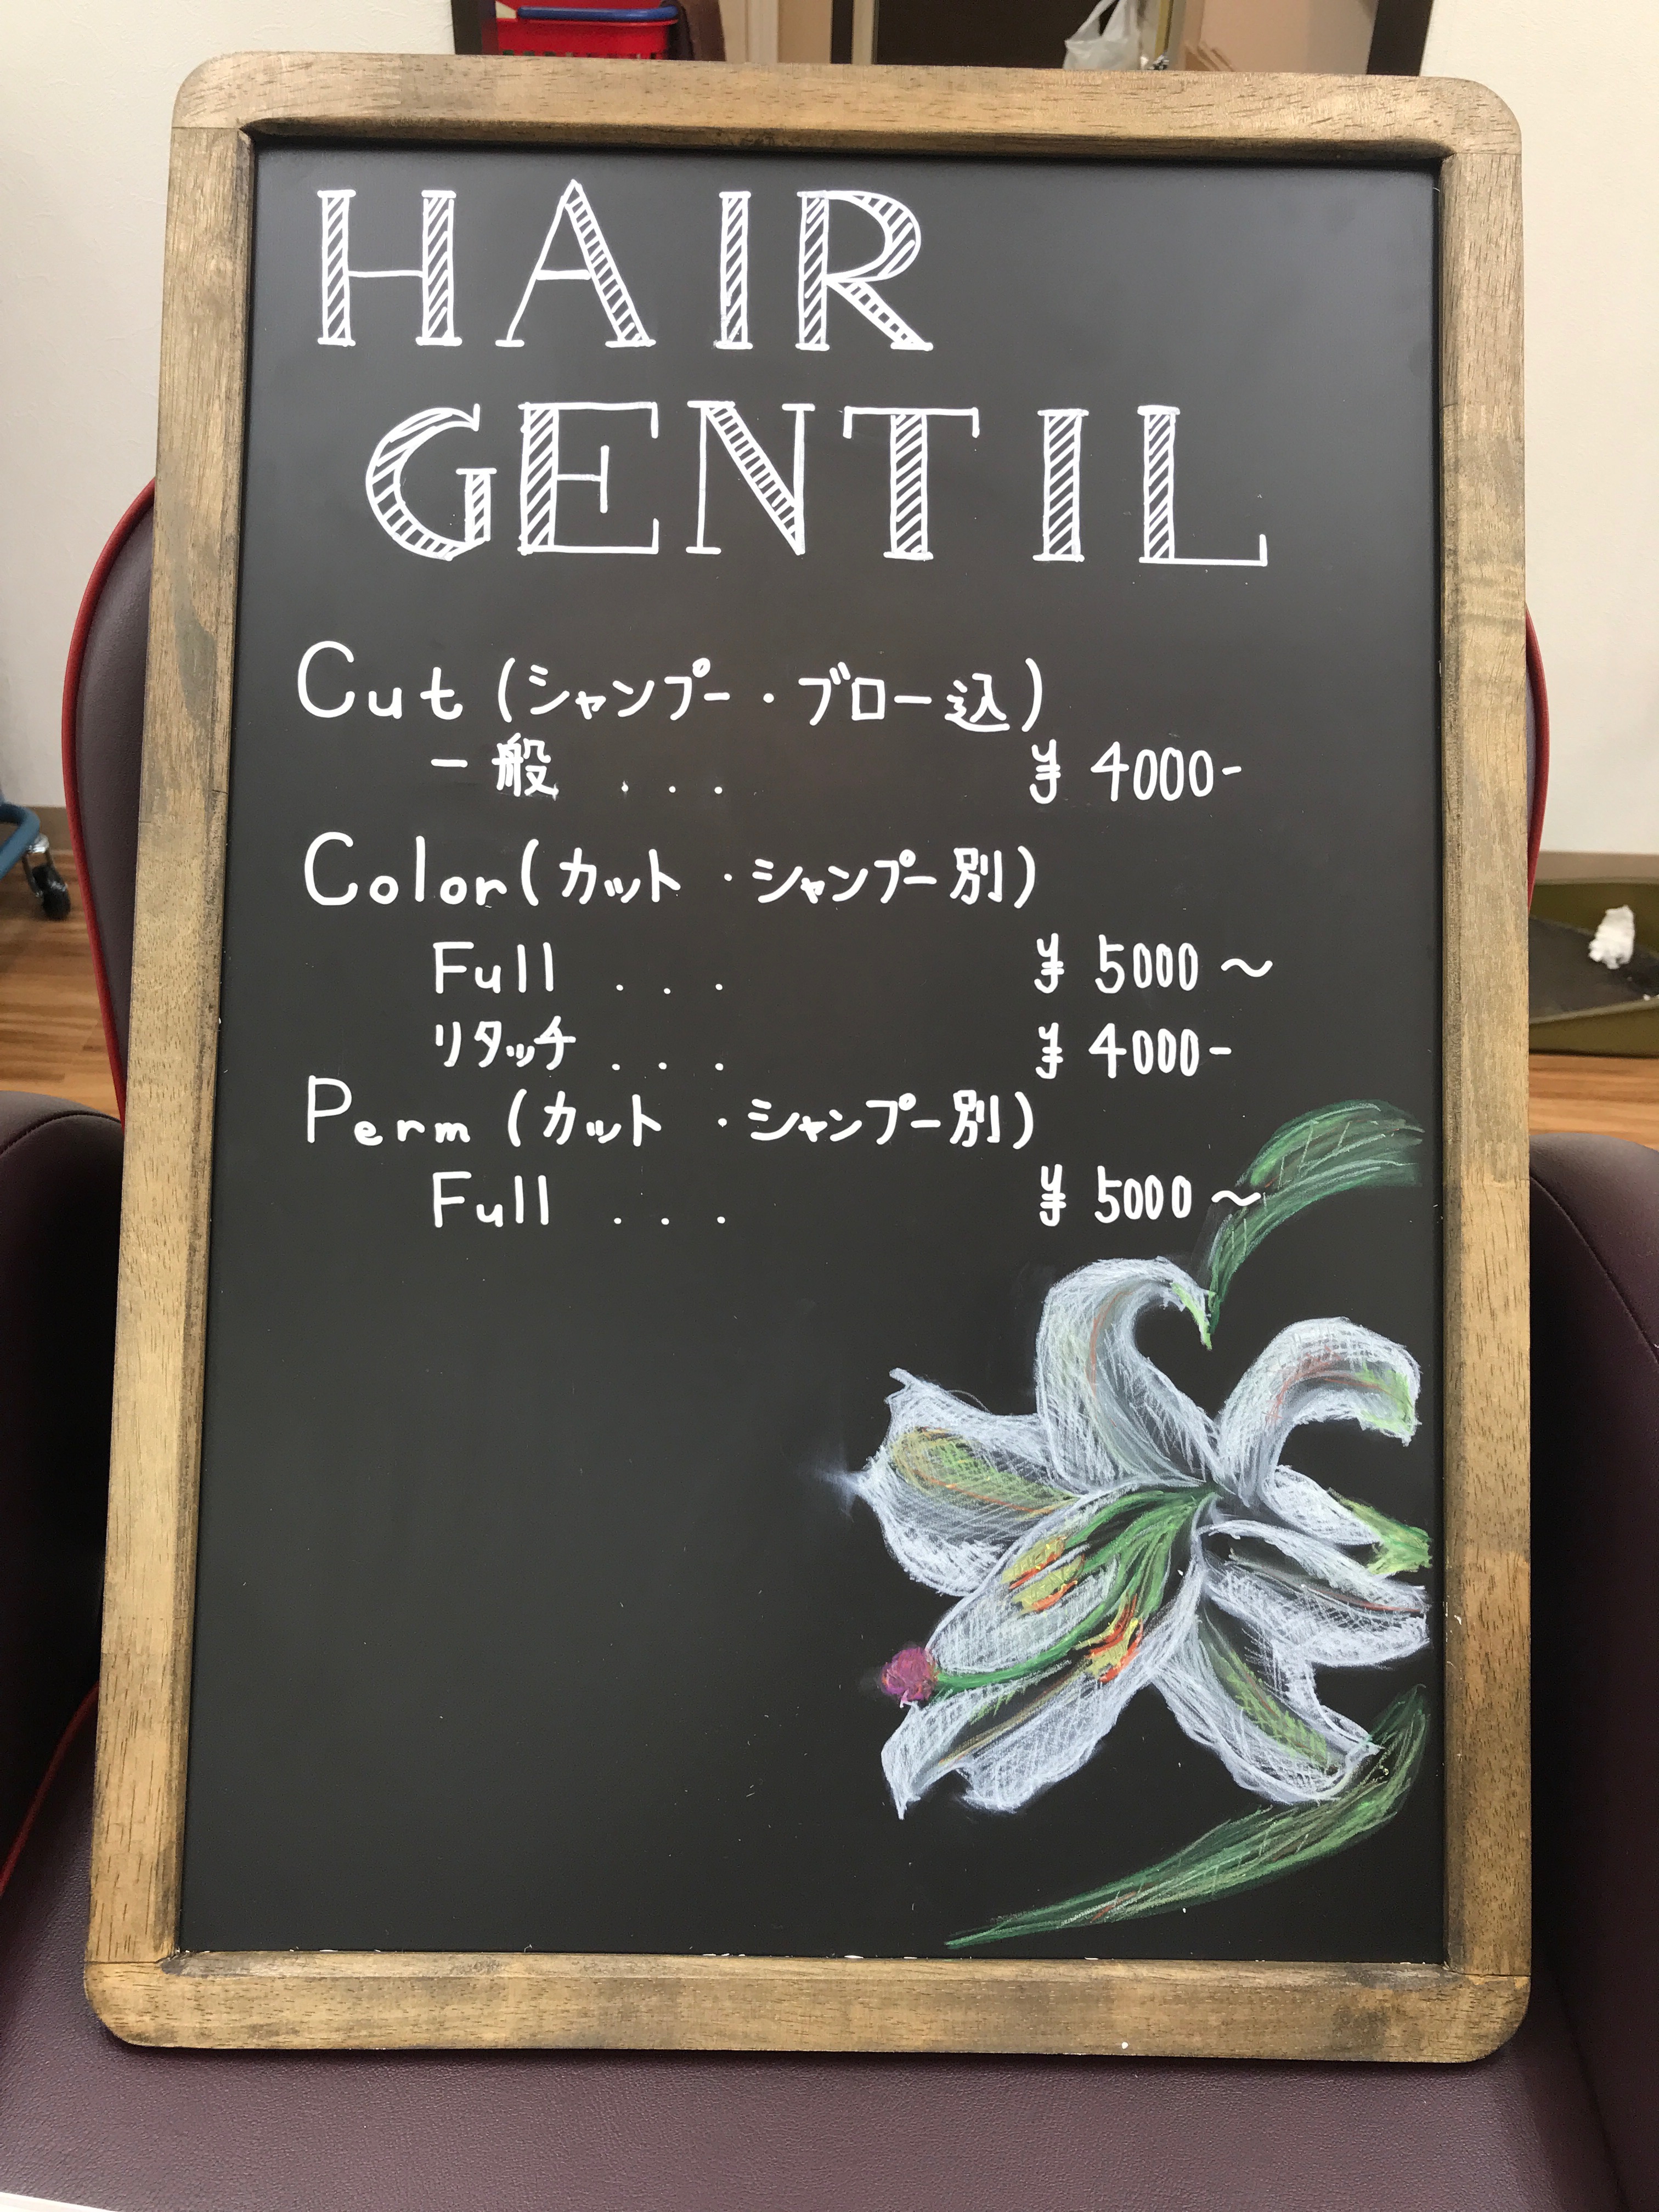 HAIR
GENTIL
Cut (シャンプー・ブロー込)
一般 ... ¥4000-
Color (カット・シャンプー別)
Full ... ¥5000～
リタッチ ... ¥4000-
Perm (カット・シャンプー別)
Full ... ¥5000～